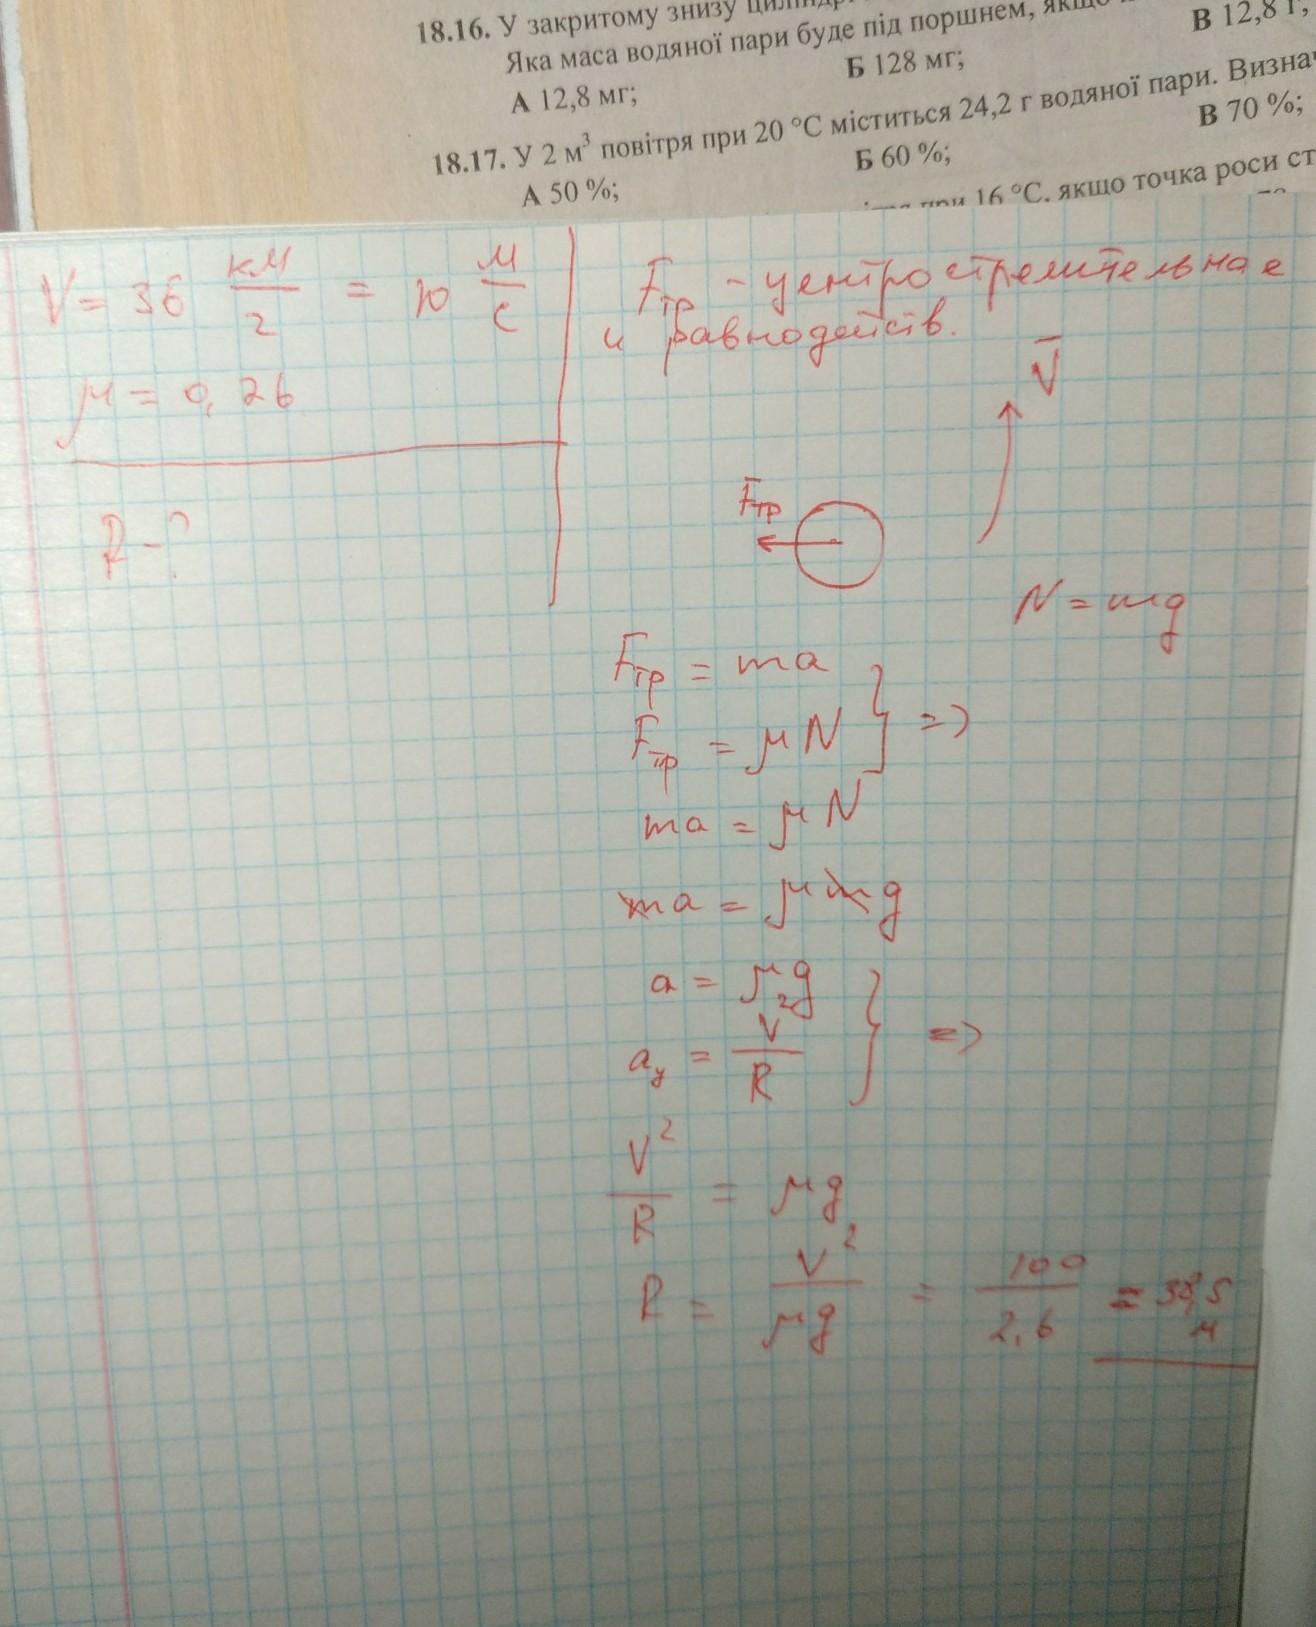 18.16. У закритому знизу
Яка маса водяної пари буде під поршнем,
А 12,8 мг; Б 128 мг; В 12,8 г;
18.17. У 2 м³ повітря при 20 °С міститься 24,2 г водяної пари.
А 50 %; Б 60 %; В 70 %;
при 16 °С, якщо точка роси
V = 36 км/г = 10 м/с
μ = 0,26
R - ?
Fтр - центростремительная
и равнодейств.
V
Fтр
N = mg
Fтр = ma
Fтр = μN } =>
ma = μN
ma = μmg
a = μg
aу = V²/R } =>
V²/R = μg
R = V²/μg = 100/2,6 = 38,5 м